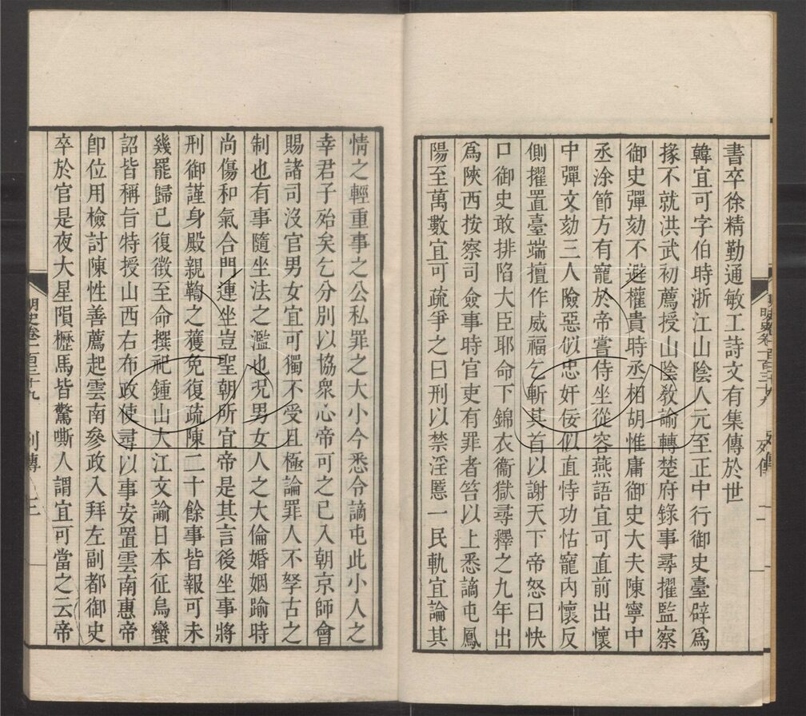 書卒徐精勤通敏工詩文有集傳於世
韓宜可字伯時浙江山陰人元至正中行御史臺辟爲
掾不就洪武初薦授山陰敎諭轉楚府錄事尋擢監察
御史彈劾不避權貴時丞相胡惟庸御史大夫陳寧中
丞涂節方有寵於帝嘗侍坐從容燕語宜可直前出懷
中彈文劾三人險惡似忠奸佞似直恃功怙寵內懷反
側擢置臺端擅作威福乞斬其首以謝天下帝怒曰快
口御史敢排陷大臣耶命下錦衣衞獄尋釋之九年出
爲陝西按察司僉事時官吏有罪者笞以上悉謫屯鳳
陽至萬數宜可疏爭之曰刑以禁淫慝一民軌宜論其
情之輕重事之公私罪之大小今悉令謫屯此小人之
幸君子殆矣乞分別以協衆心帝可之已入朝京師會
賜諸司沒官男女宜可獨不受且極論罪人不孥古之
制也有事隨坐法之濫也况男女人之大倫婚姻踰時
尚傷和氣合門連坐豈聖朝所宜帝是其言後坐事將
刑御謹身殿親鞫之獲免復疏陳二十餘事皆報可未
幾罷歸已復徵至命撰祀鍾山大江文諭日本征烏蠻
詔皆稱旨特授山西右布政使尋以事安置雲南惠帝
卽位用檢討陳性善薦起雲南參政入拜左副都御史
卒於官是夜大星隕櫪馬皆驚嘶人謂宜可當之云帝
明史卷一百三十九 列傳